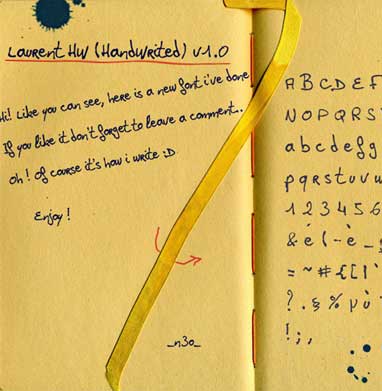 Laurent HW (Handwrited) v1.0
Hi! Like you can see, here is a new font i've done
If you like it don't forget to leave a comment..
Oh! Of course it's how i write :D
Enjoy!
_n3o_
A B C D E F
N O P Q R S
a b c d e f g
p q r s t u v w
1 2 3 4 5 6
& é ( - è _
= ~ # { [ | `
? . § % µ ù
! ; ,